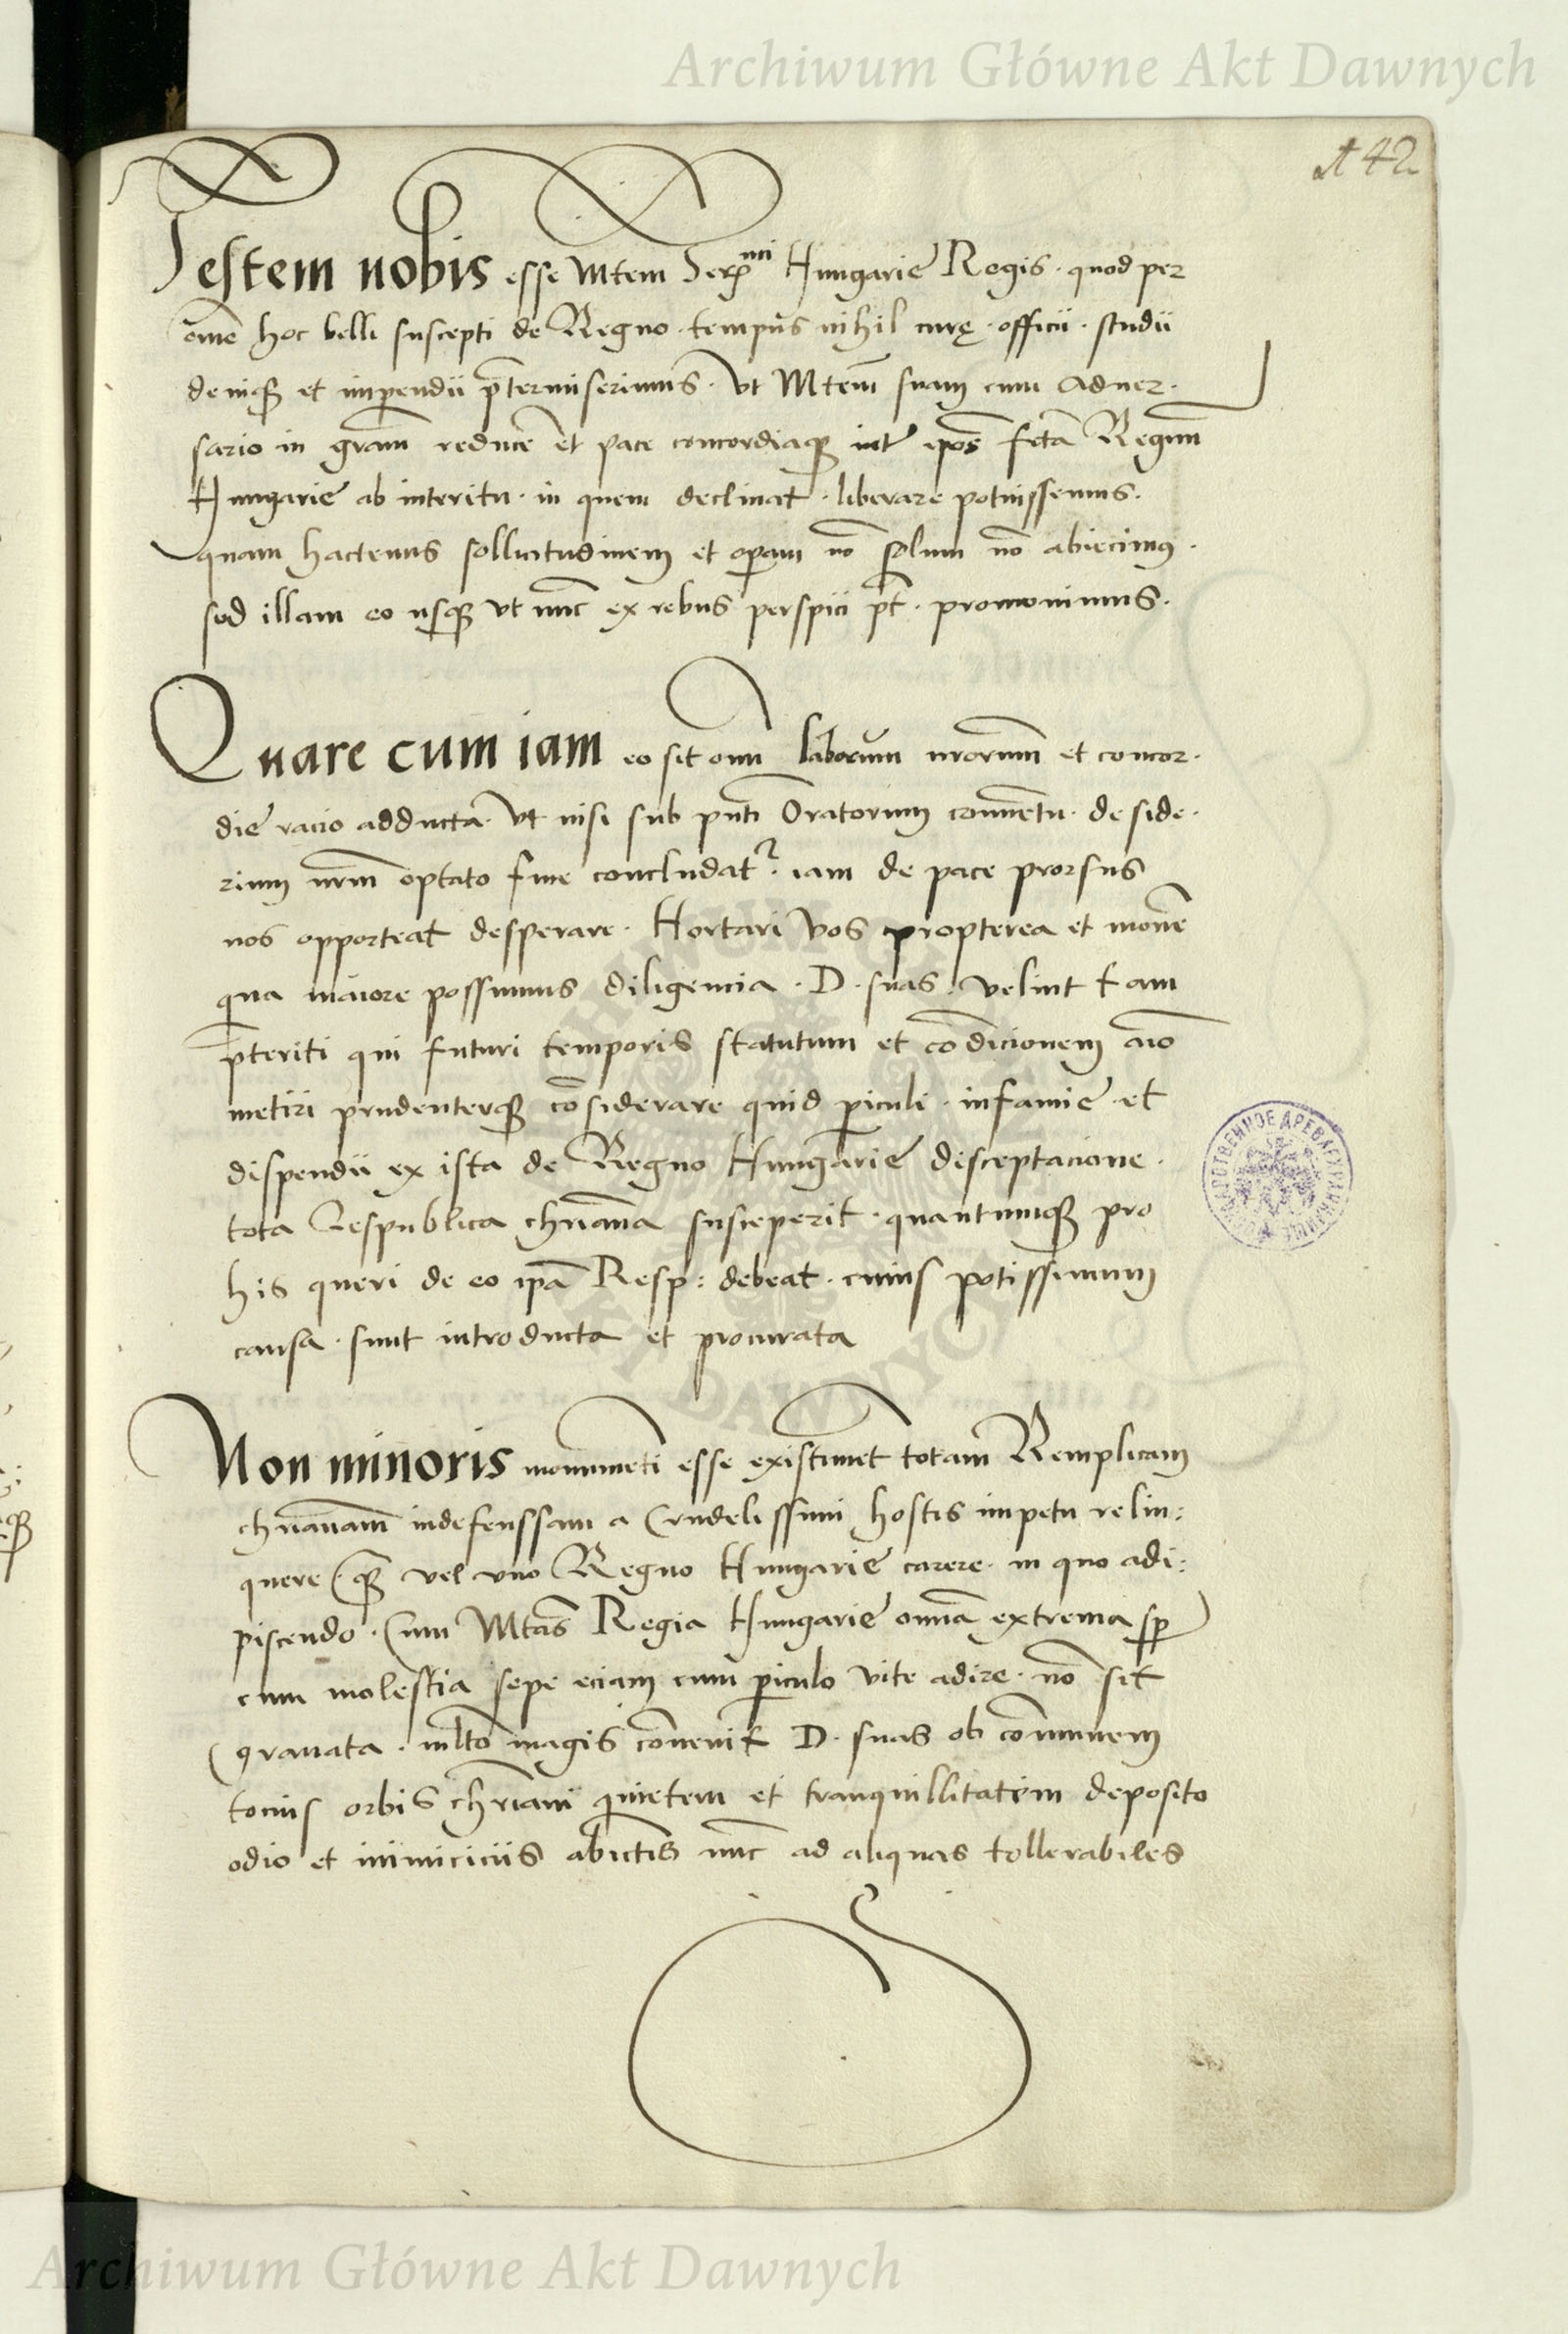 Archiwum Główne Akt Dawnych
142
Testem nobis esse Mtem Serᵐⁱ Hungarie Regis · quod per
om̄e hoc belli suscepti de Regno · tempus nihil curę · officii · studii
deniqꝫ et impendii p̄termiserimus · Vt Mtem̄ suam cum Aduer·
sario in gram̄ reduce͞ et pace concordiaqꝫ int͛ ip̄os fc̄ta Regnum
Hungarie ab interitu · in quem declinat · liberare potuissemus ·
quam hactenus sollicitudinem et oꝑam no͞ solum no͞ abiecimus ·
sed illam eo usqꝫ vt nu͞c ex rebus perspici pt̄ · promouimus ·
Quare cum iam eo sit om̄i laborum nr̄orum et concor·
die racio adducta · Vt nisi sub pn̄ti Oratorum conuentu · deside·
rium nr̄m optato fine concludatur · iam de pace prorsus
nos opporteat desperare · Hortari Vos propterea et mone͞
qua maiore possumus diligencia · D · suas · velint tam
p̄teriti qui futuri temporis statutum et co͞dicionem ai͞o
metiri prudenterqꝫ co͞siderare quid ꝑiculi · infamie · et
dispendii ex ista de Regno Hungarie disceptacione ·
tota Respublica chr̄iana susceperit · quantumqꝫ pro
his queri de eo ip̄a Resp: debeat · cuius potissimum
causa · sunt introducta et procurata
Non minoris monumēti esse existimet totam Remplicam
chr̄ianam indefenssam a Crudelissimi hostis impetu relin:
quere qꝫ vel vno Regno Hungarie carere · in quo adi:
piscendo · Cum Mtas Regia Hungarie omn̄a extrema sp̄
cum molestia sepe eciam cum ꝑiculo vite adire · no͞ sit
grauata · ml̄to magis co͞uenit D · suas ob co͞munem
tocius orbis chr̄iani quietem et tranquillitatem deposito
odio et inimiciciis abiectis nu͞c ad aliquas tollerabiles
Archiwum Główne Akt Dawnych